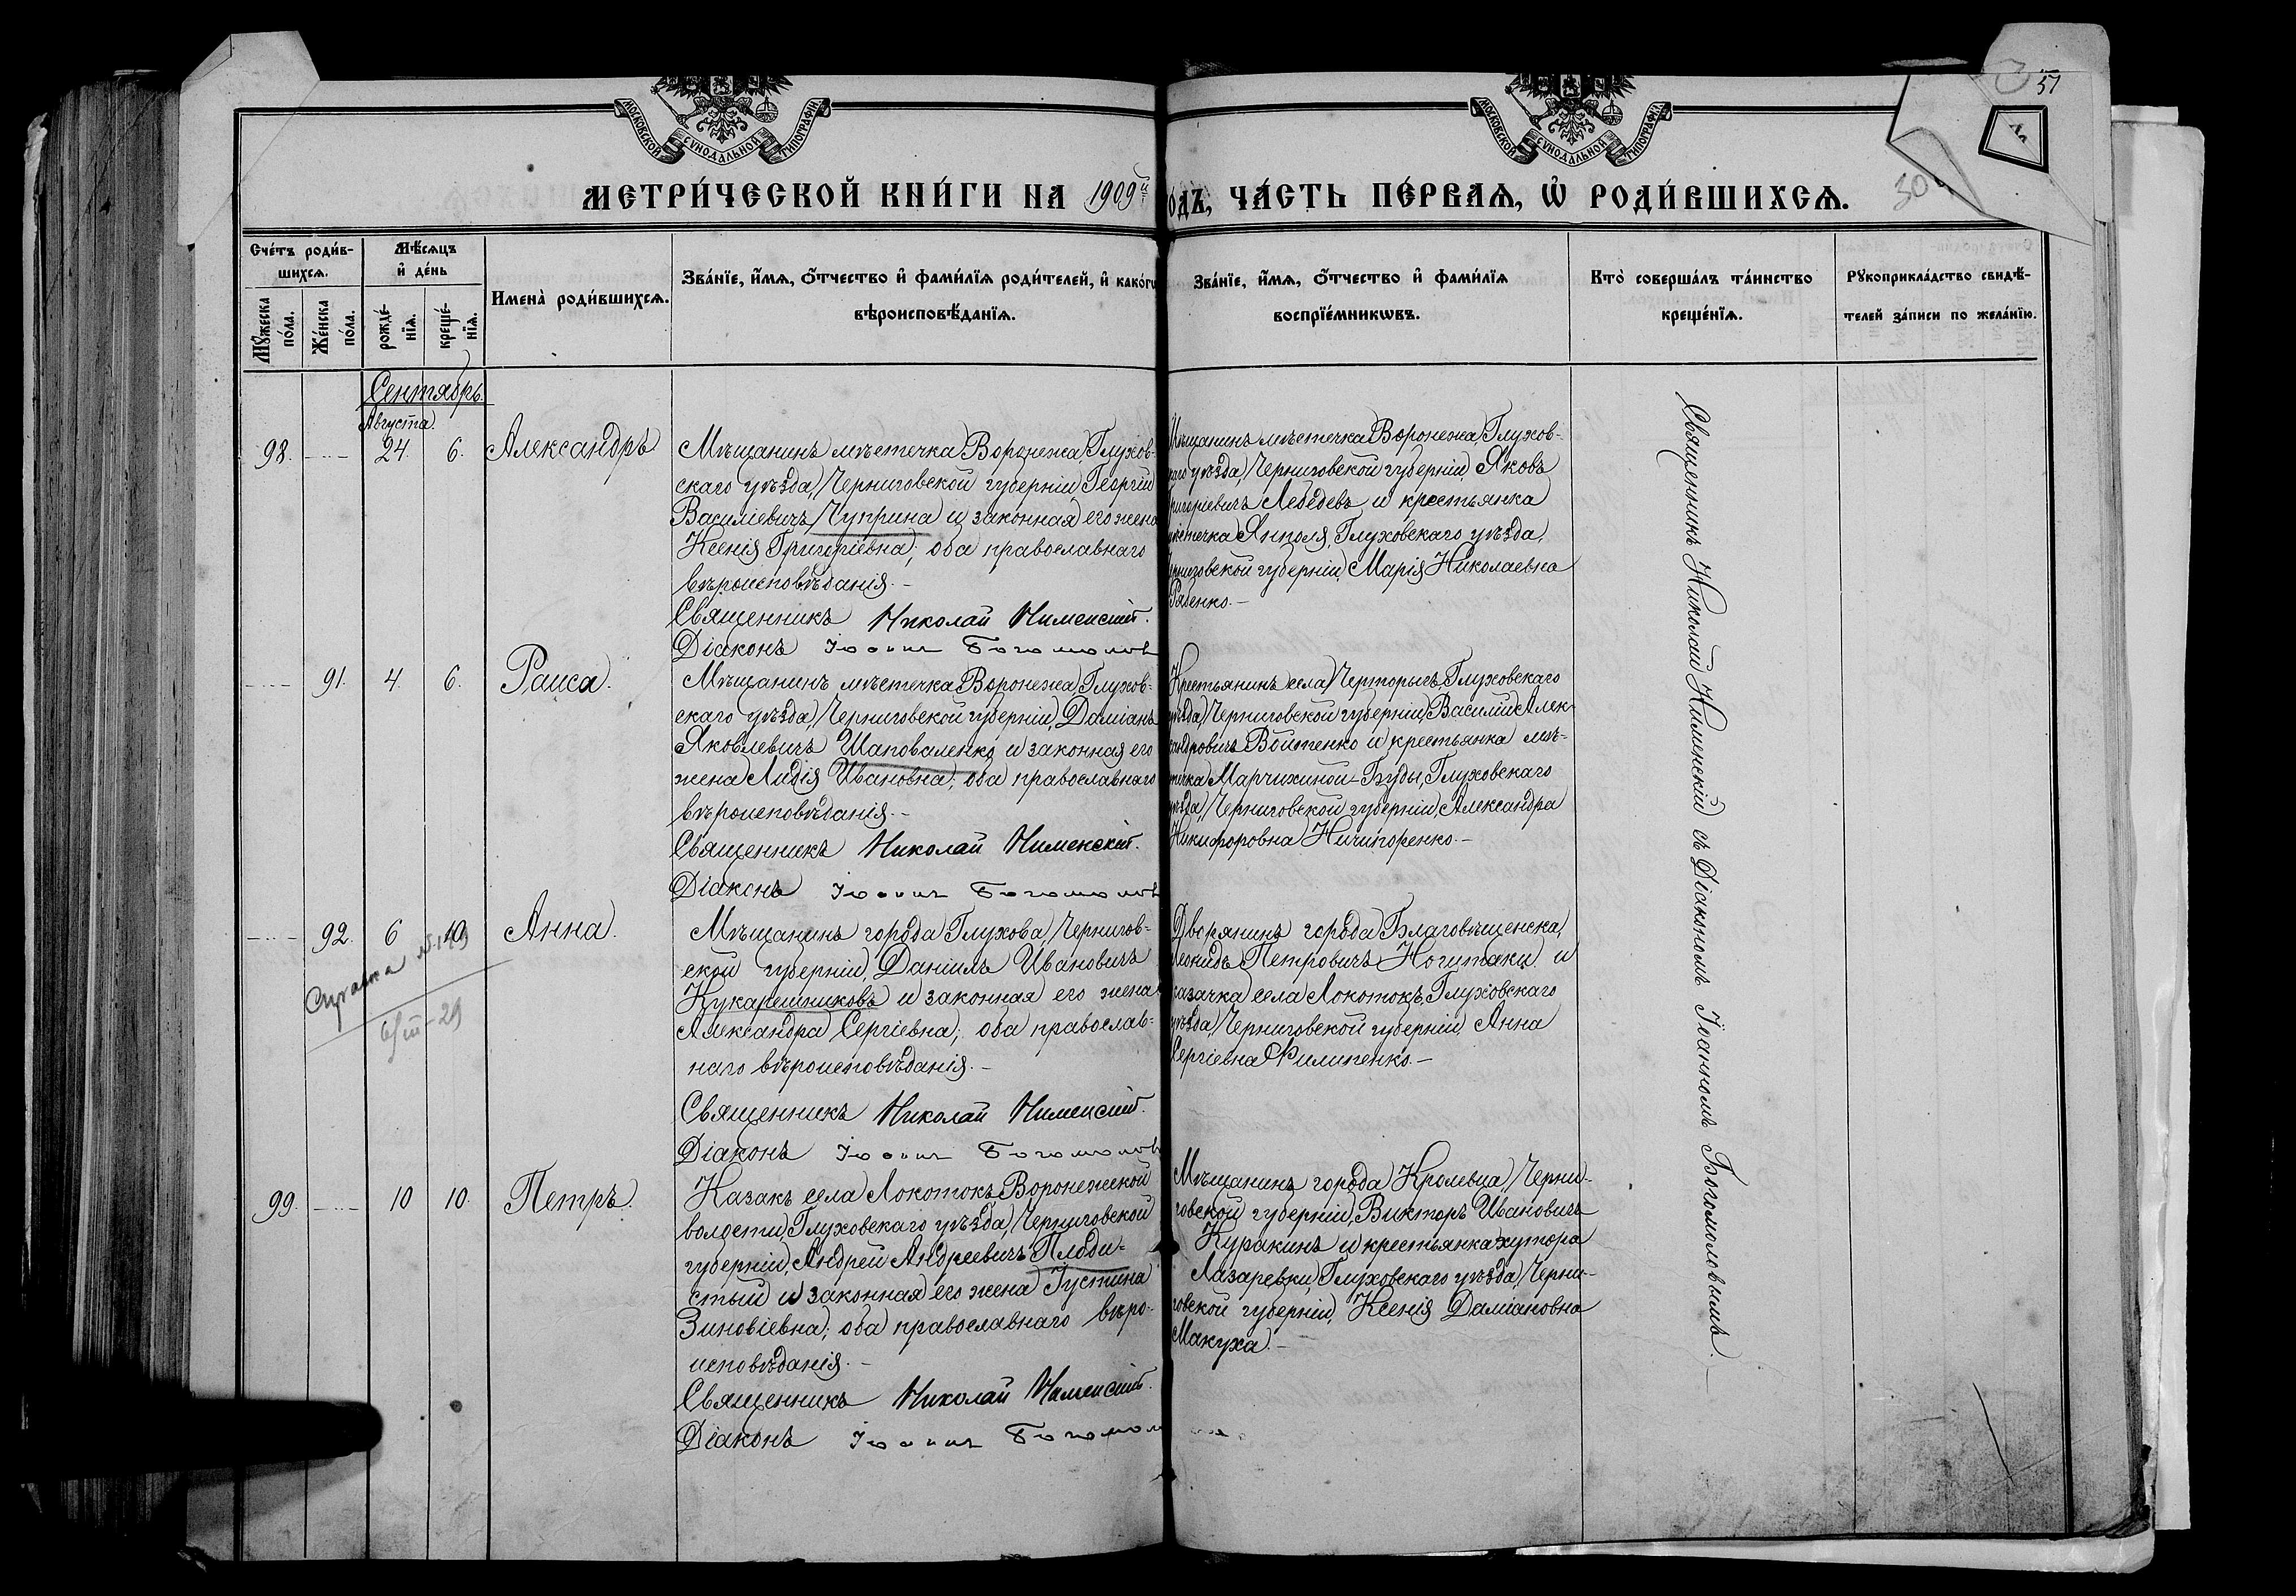 МОСКОВСКОЙ СУНОДАЛЬНОЙ ТИПОГРАФІИ
МОСКОВСКОЙ СУНОДАЛЬНОЙ ТИПОГРАФІИ
51
МЕТРИ́ЧЕСКОЙ КНИ́ГИ НА 1909й
ОДЪ, ЧА́СТЬ ПЕ́РВАѦ, Ѡ҆ РОДИ́ВШИХСѦ.
Сче́тъ роди́в-
шихсѧ.
Мꙋ́жеска по́ла.
Же́нска по́ла.
Мѣ́сѧцъ
и҆ де́нь
рожде́-нїѧ.
креще́-нїѧ.
Имена̀ роди́вшихсѧ.
Зва́нїе, и҆́мѧ, ѻ҆́тчество и҆ фами́лїѧ роди́телей, и҆ како́гѡ
вѣроисповѣ́данїѧ.
Зва́нїе, и҆́мѧ, ѻ҆́тчество и҆ фами́лїѧ
воспрїе́мникѡвъ.
Кто̀ соверша́лъ та́инство
креще́нїѧ.
Рꙋкоприкла́дство свидѣ́-
телей за́писи по жела́нїю.
Сентябрь.
Августа
98. 24. 6. Александръ
Мѣщанинъ мѣстечка Воронежа, Глухов-
скаго уѣзда, Черниговской губерніи Георгій
Василіевичъ Чуприна и законная его жена
Ксенія Григоріевна; оба православнаго
вѣроисповѣданія.-
Священникъ Николай Нименскій.
Діаконъ Іоаннъ Богомоловъ
Мѣщанинъ мѣстечка Воронежа, Глухов-
уѣзда, Черниговской губерніи, Яковъ
Григоріевичъ Лебедевъ и крестьянка
мѣстечка Янполя, Глуховскаго уѣзда,
Черниговской губерніи, Марія Николаевна
91. 4. 6. Раиса.
Мѣщанинъ мѣстечка Воронежа, Глухов-
скаго уѣзда, Черниговской губерніи, Даміанъ
Яковлевичъ Шаповаленко и законная его
жена Лидія Ивановна; оба православнаго
вѣроисповѣданія.-
Священникъ Николай Нименскій.
Діаконъ Іоаннъ Богомоловъ
Крестьянинъ села Черторыгъ, Глуховскаго
уѣзда, Черниговской губерніи, Василій Алек-
сандровичъ Войтенко и крестьянка мѣ-
стечка Марчихиной-Буды, Глуховскаго
уѣзда, Черниговской губерніи, Александра
Никифоровна Ничипоренко.-
92. 6 10 Анна.
Справка №
6/III-29
Мѣщанинъ города Глухова, Чернигов-
ской губерніи, Даніилъ Ивановичъ
Кукарешниковъ и законная его жена
Александра Сергіевна; оба православ-
наго вѣроисповѣданія.-
Священникъ Николай Нименскій.
Діаконъ Іоаннъ Богомоловъ
Дворянинъ города Благовѣщенска,
Леонидъ Петровичъ и
казачка села Локотокъ, Глуховскаго
уѣзда, Черниговской губерніи, Анна
Сергіевна Филипенко.-
99. 10 10. Петръ.
Казакъ села Локотокъ, Воронежской
волости, Глуховскаго уѣзда, Черниговской
губерніи, Андрей Андреевичъ Плоди-
стый и законная его жена Іустина
Зиновіевна; оба православнаго вѣро-
исповѣданія.-
Священникъ Николай Нименскій.
Діаконъ Іоаннъ Богомоловъ
Мѣщанинъ города Кролевца, Черни-
говской губерніи, Викторъ Ивановичъ
Куракинъ и крестьянка хутора
Лазаревки, Глуховскаго уѣзда, Черни-
говской губерніи, Ксенія Даміановна
Макуха.-
Священникъ Николай Нименскій съ Діакономъ Іоанномъ Богомоловымъ.